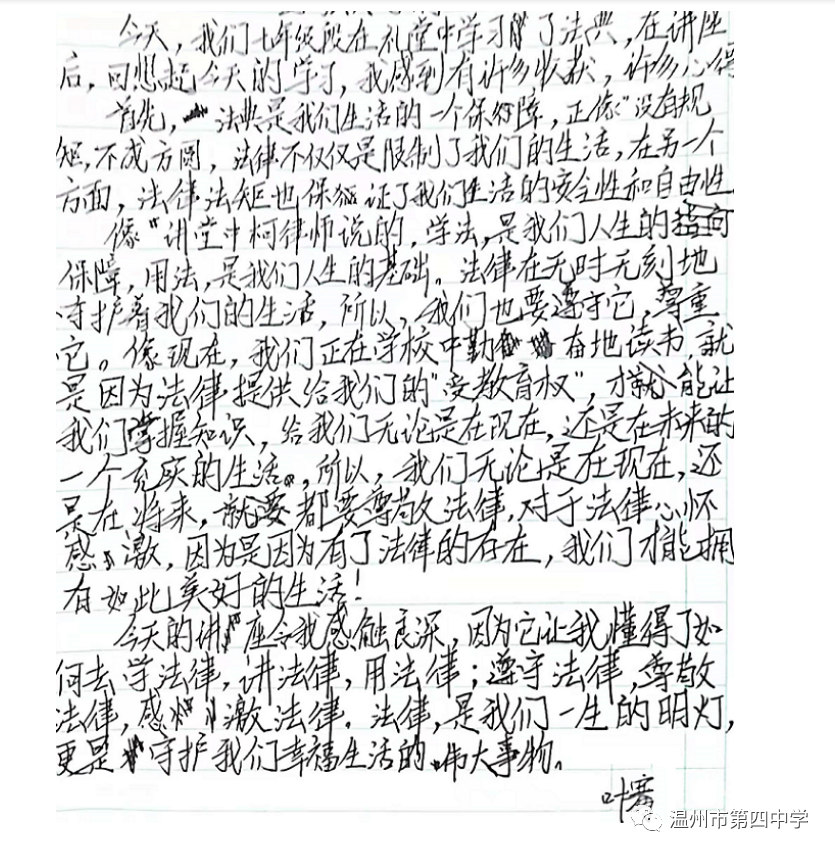 今天，我们七年级段在礼堂中学习了法典，在讲座
后，回想起今天的学习，我感到有许多收获，许多心得
首先，法典是我们生活的一个保障，正像"没有规
矩，不成方圆，法律不仅仅是限制了我们的生活，在另一个
方面，法律法矩也保证了我们生活的安全性和自由性。
像"讲堂中柯律师说的，学法，是我们人生的指向
保障，用法，是我们人生的基础。法律在无时无刻地
守护着我们的生活，所以，我们也要遵守它，尊重
它。像现在，我们正在学校中勤奋地读书，就
是因为法律提供给我们的"受教育权"，才能让
我们掌握知识，给我们无论是在现在，还是在未来的
一个充实的生活。所以，我们无论是在现在，还
是在将来，都要尊敬法律，对于法律心怀
感激，因为是因为有了法律的存在，我们才能拥
有如此美好的生活！
今天的讲座令我感触良深，因为它让我懂得了如
何去学法律，讲法律，用法律；遵守法律，尊敬
法律，感激法律．法律，是我们一生的明灯，
更是守护我们幸福生活的伟大事物。
叶
温州市第四中学